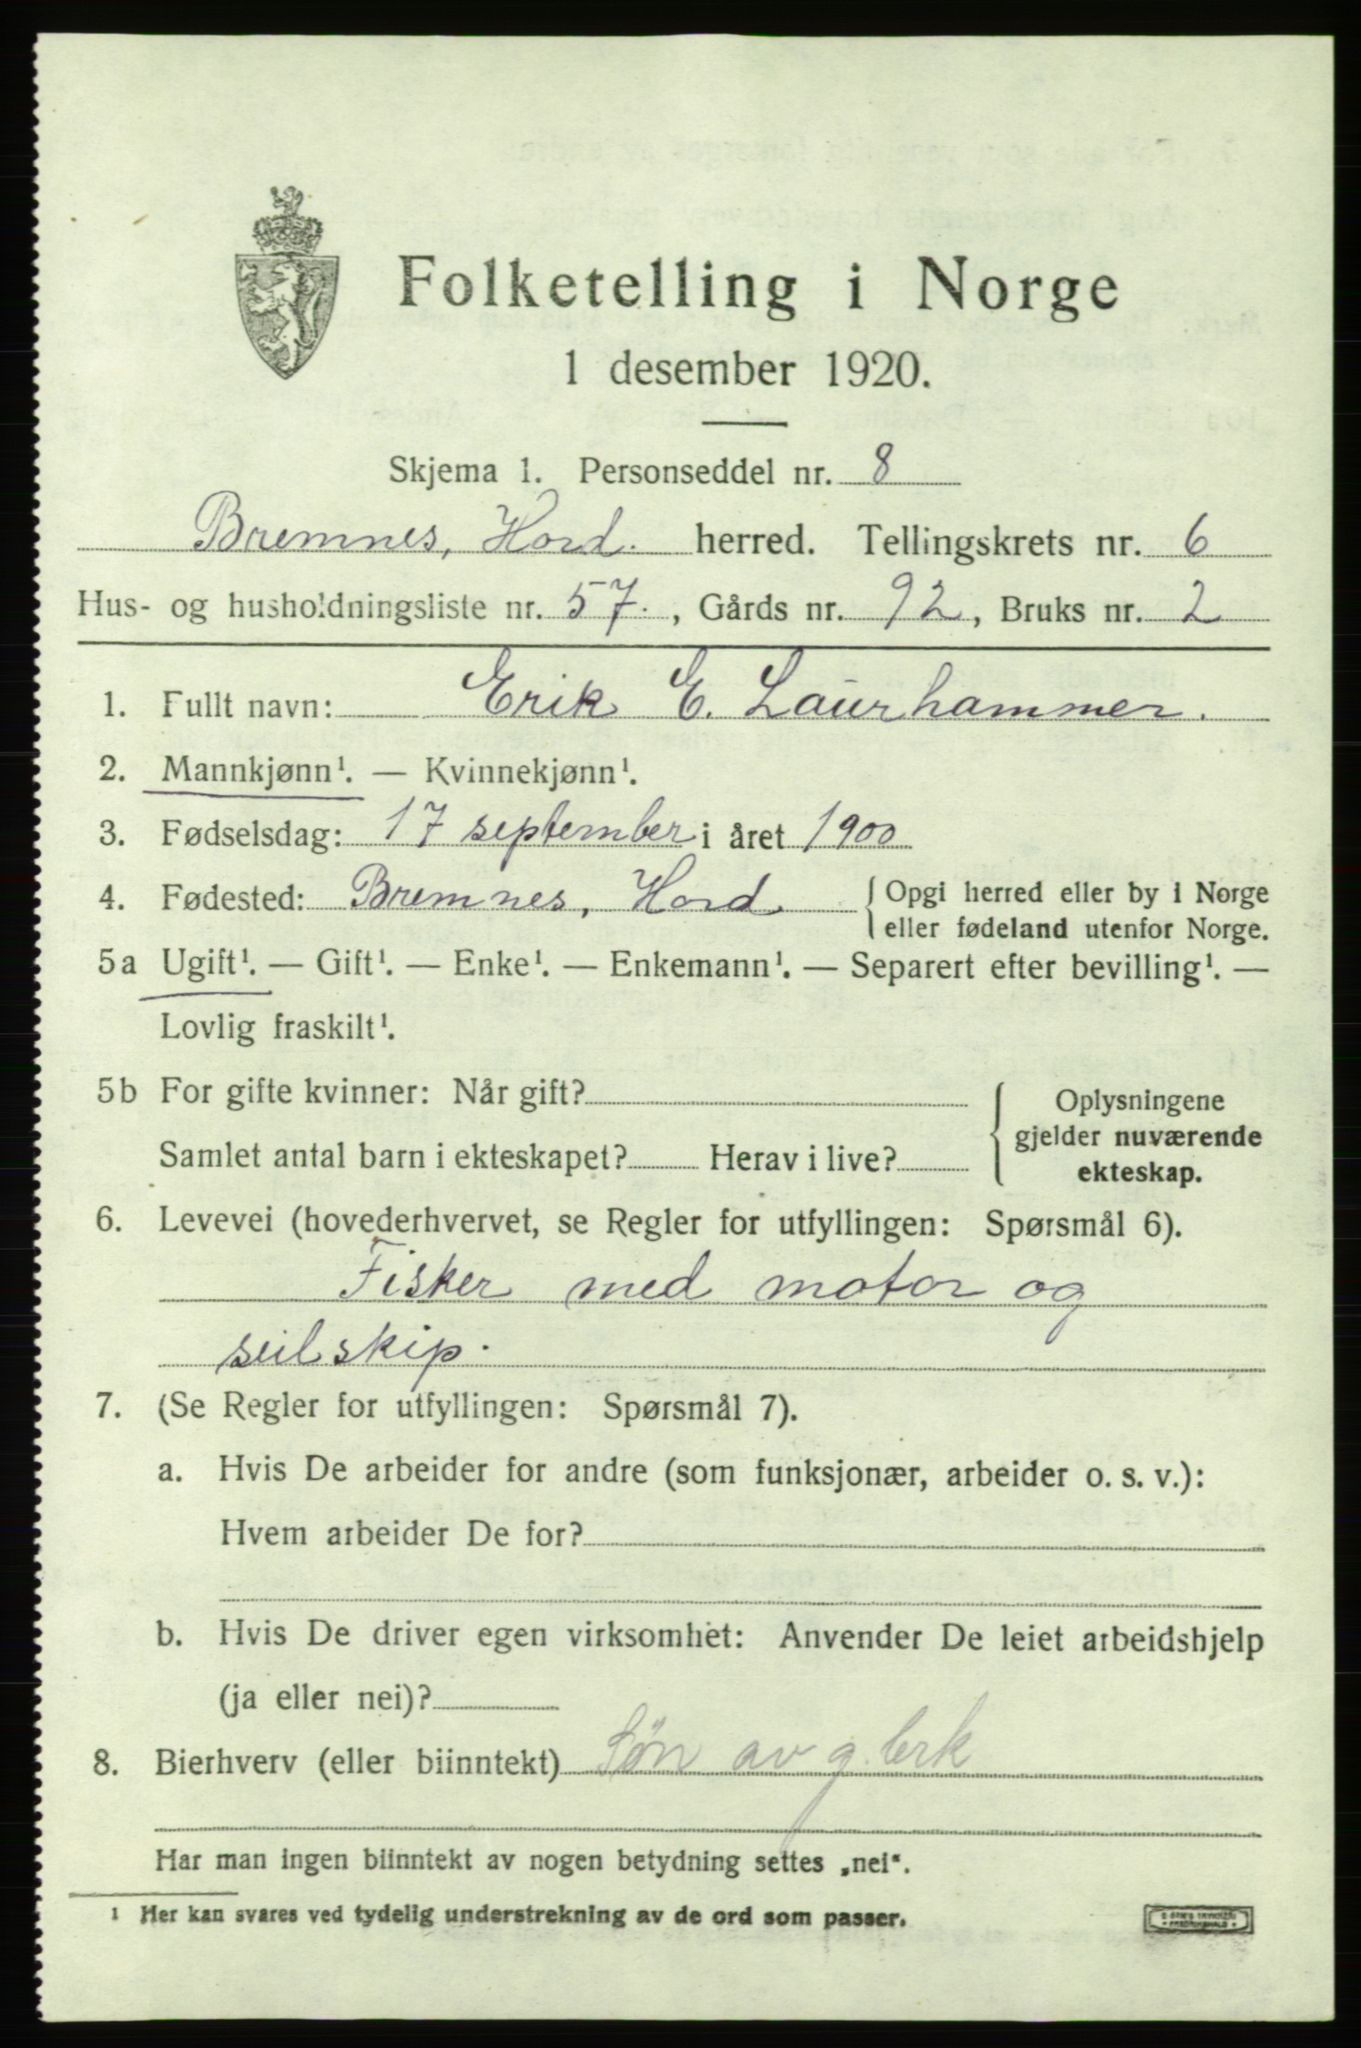 Folketelling i Norge
1 desember 1920.
Skjema 1. Personseddel nr. 8
Bremnes, Hord. herred. Tellingskrets nr. 6
Hus- og husholdningsliste nr. 57., Gårds nr. 92, Bruks nr. 2
1. Fullt navn: Erik E. Laurhammer.
2. Mannkjønn¹. — Kvinnekjønn¹.
3. Fødselsdag: 17 september i året 1900
4. Fødested: Bremnes, Hord. { Opgi herred eller by i Norge
eller fødeland utenfor Norge.
5a Ugift¹. — Gift¹. — Enke¹. — Enkemann¹. — Separert efter bevilling¹. —
Lovlig fraskilt¹.
5b For gifte kvinner: Når gift?
Samlet antal barn i ekteskapet? Herav i live?
{ Oplysningene
gjelder nuværende
ekteskap.
6. Levevei (hovederhvervet, se Regler for utfyllingen: Spørsmål 6).
Fisker med motor og
seilskip.
7. (Se Regler for utfyllingen: Spørsmål 7).
a. Hvis De arbeider for andre (som funksjonær, arbeider o. s. v.):
Hvem arbeider De for?
b. Hvis De driver egen virksomhet: Anvender De leiet arbeidshjelp
(ja eller nei)?
8. Bierhverv (eller biinntekt) Søn av g.brk
Har man ingen biinntekt av nogen betydning settes „nei“.
¹ Her kan svares ved tydelig understrekning av de ord som passer.